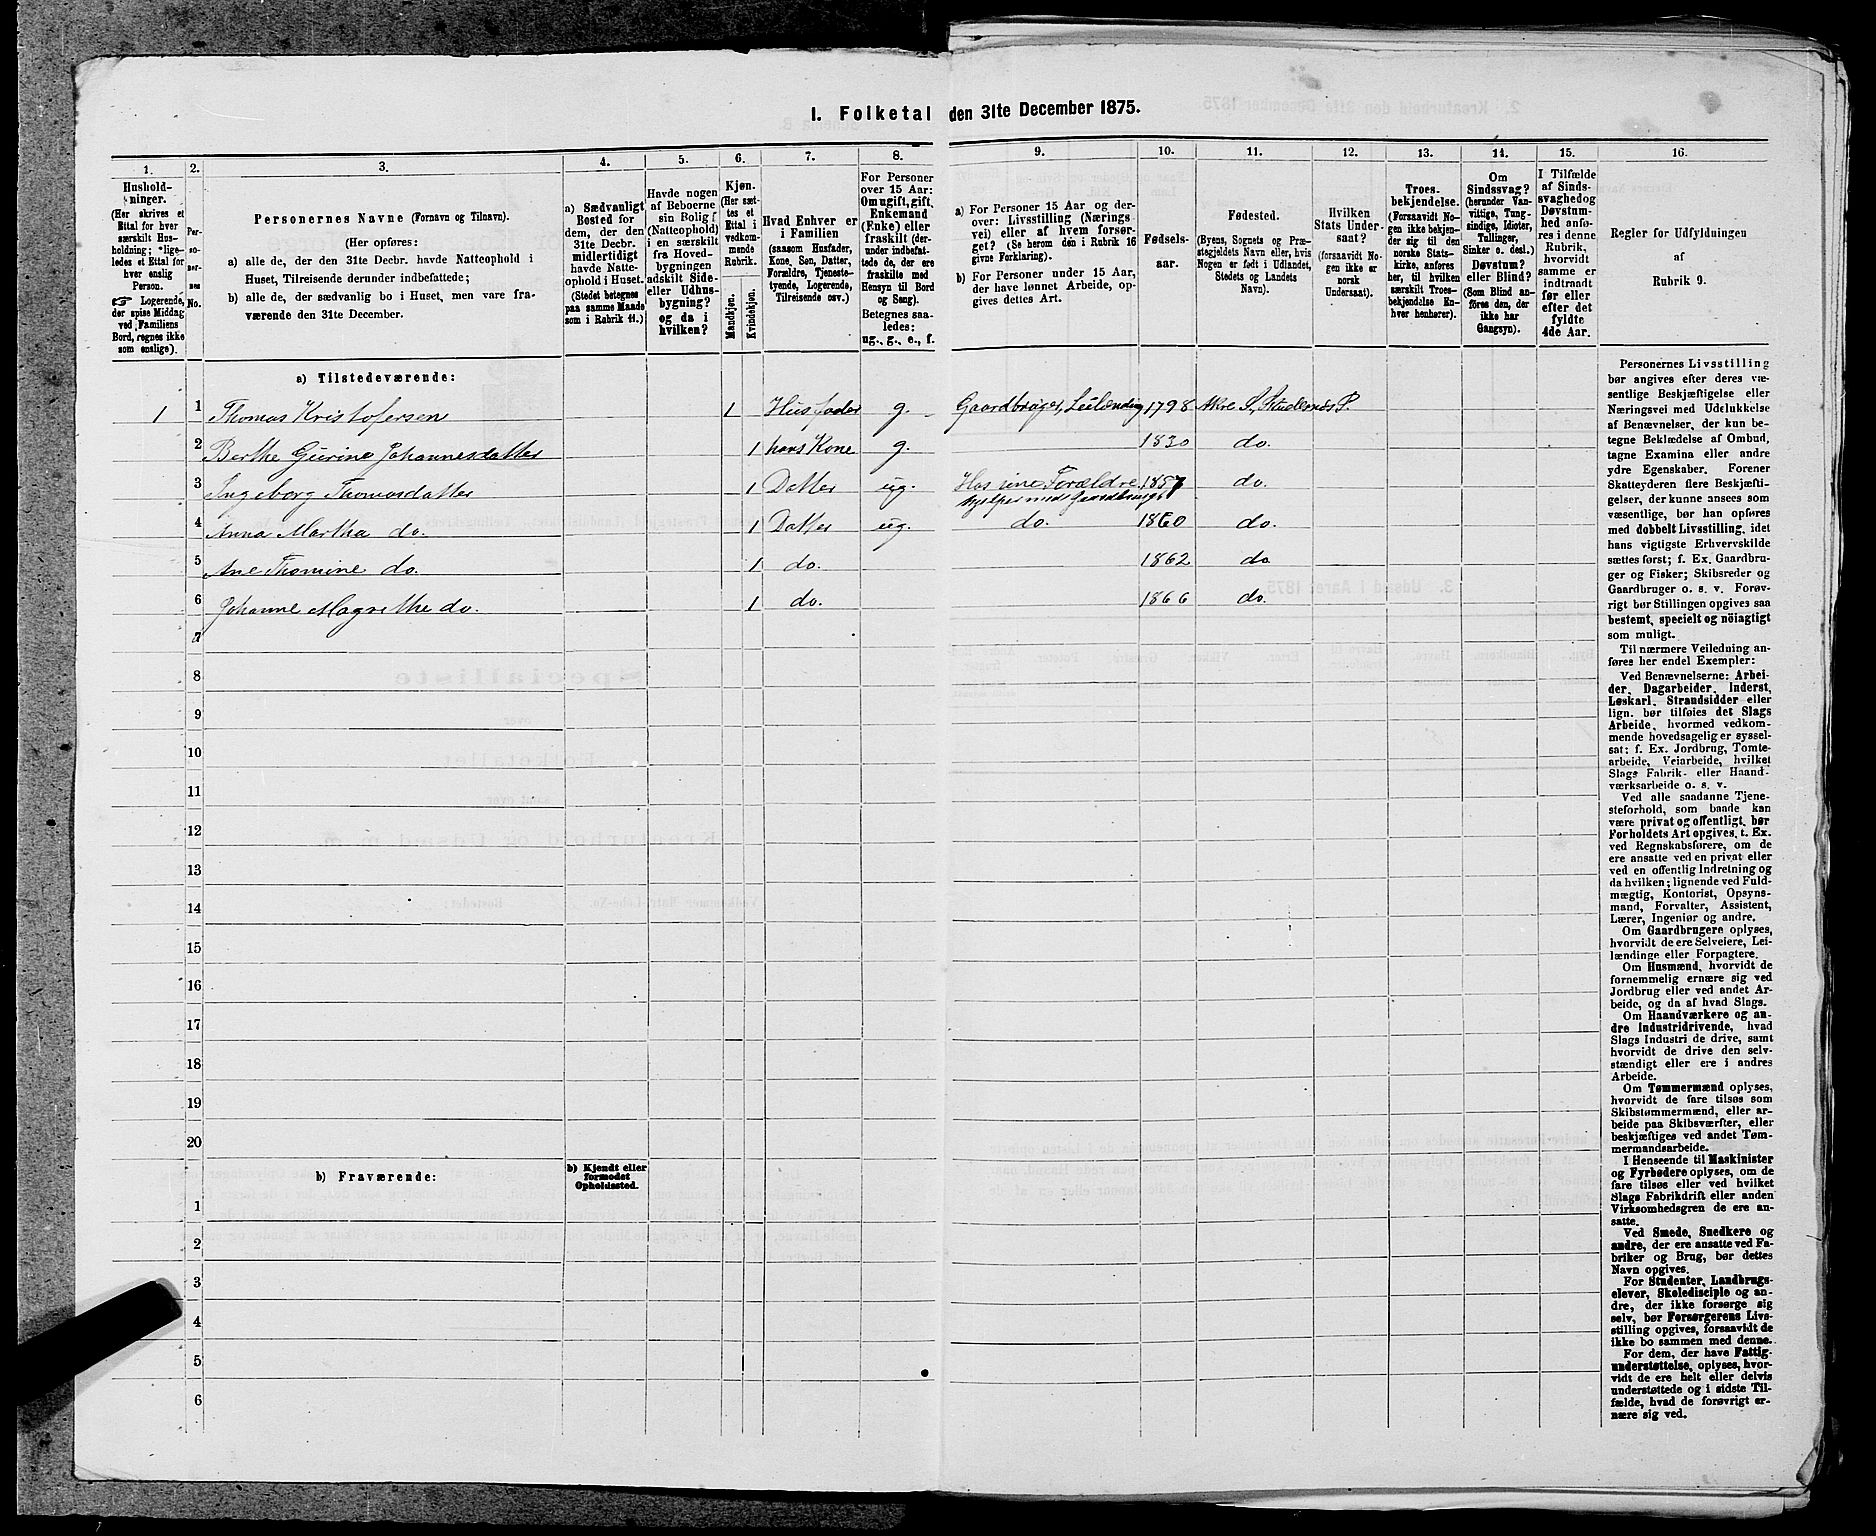 I. Folketal den 31te December 1875.
1.
2.
3.
4.
5.
6.
7.
8.
9.
10.
11.
12.
13.
14.
15.
16.
Hushold-
ninger.
(Her skrives et
Ettal for hver
særskilt Hus-
holdning; ligele-
des et Ettal for
hver enslig
Person.
☞ Logerende,
der spise Middag
ved Familiens
Bord, regnes ikke
som enslige).
Per-
so-
ner-
nes
No.
Personernes Navne (Fornavn og Tilnavn).
(Her opføres:
a) alle de, der den 31te Decbr. havde Natteophold i
Huset, Tilreisende derunder indbefattede;
b) alle de, der sædvanlig bo i Huset, men vare fra-
værende den 31te December.
a) Sædvanligt
Bosted for
dem, der den
31te Decbr.
midlertidigt
havde Natte-
ophold i Huset.
(Stedet betegnes
paa samme Maade
som i Rubrik 11.)
Havde nogen
af Beboerne
sin Bolig
(Natteophold)
i en særskilt
fra Hoved-
bygningen
adskilt Side-
eller Udhus-
bygning?
og da i
hvilken?
Kjøn.
(Her sæt-
tes et
Ettal i
vedkom-
mende
Rubrik.
Mandkjøn.
Kvindekjøn.
Hvad Enhver er
i Familien
(saasom Husfader,
Kone, Søn, Datter,
Forældre, Tjeneste-
tyende, Logerende,
Tilreisende osv.)
For Personer
over 15 Aar:
Om ugift, gift,
Enkemand
(Enke) eller
fraskilt (der-
under indbefat-
tede de, der ere
fraskilte med
Hensyn til Bord
og Seng).
Betegnes saa-
ledes:
ug., g., e., f.
a) For Personer 15 Aar og der-
over: Livsstilling (Nærings-
vei) eller af hvem forsør-
get? (Se herom den i Rubrik 16
givne Forklaring).
b) For Personer under 15 Aar,
der have lønnet Arbeide, op-
gives dettes Art.
Fødsels-
aar.
Fødested.
(Byens, Sognets og Præ-
stegjeldets Navn eller, hvis
Nogen er født i Udlandet,
Stedets og Landets
Navn).
Hvilken
Stats Under-
saat?
(forsaavidt No-
gen ikke er
norsk
Undersaat).
Troes-
bekjendelse.
(Forsaavidt No-
gen ikke bekjen-
der sig til den
norske Stats-
kirke, anføres
her, til hvilken
særskilt Troes-
bekjendelse En-
hver henhører).
Om
Sindssvag?
(herunder Van-
vittige, Tung-
sindige, Idioter,
Tullinger,
Sinker o. desl.)
Døvstum?
eller Blind?
(Som Blind an-
føres den, der
ikke har
Gangsyn).
I Tilfælde
af Sinds-
svaghed og
Døvstum-
hed anfø-
res i denne
Rubrik,
hvorvidt
samme er
indtraadt
før eller
efter det
fyldte
4de Aar.
Regler for Udfyldningen
af
Rubrik 9.
a) Tilstedeværende:
1 1 Thomas Kristofersen 1 Husfader g. Gaardbruger, Leilænding 1798 Akre S., Skudesnæs P.
2 Berthe Gurine Johannesdatter 1 hans Kone g. 1830 do.
3 Ingeborg Thomasdatter 1 Datter ug. Hos sine Forældre 1857 do.
hjelper med Gaardbruget
4 Anna Martha do. 1 Datter ug. do. 1860 do.
5 Ane Thomine do. 1 do. 1862 do
6 Johanne Magrethe do. 1 do. 1866 do.
7
8
9
10
11
12
13
14
15
16
17
18
19
20
b) Fraværende:
b) Kjendt eller
formodet
Opholdssted.
1
2
3
4
5
6
Personernes Livsstilling
bør angives efter deres væ-
sentlige Beskjæftigelse eller
Næringsvei med Udelukkelse
af Benævnelser, der kun be-
tegne Beklædelse af Ombud,
tagne Examina eller andre
ydre Egenskaber. Forener
Skatteyderen flere Beskjæfti-
gelser, der kunne ansees som
væsentlige, bør han opføres
med dobbelt Livsstilling, idet
hans vigtigste Erhvervskilde
sættes først; f. Ex. Gaardbru-
ger og Fisker; Skibsreder og
Gaardbruger o. s. v. Forøv-
rigt bør Stillingen opgives saa
bestemt, specielt og nöiagtigt
som muligt.
Til nærmere Veiledning an-
føres her endel Exempler:
Ved Benævnelserne: Arbei-
der, Dagarbeider, Inderst,
Løskarl, Strandsidder eller
lign. bør tilføies det Slags
Arbeide, hvormed vedkom-
mende hovedsagelig er syssel-
sat; f. Ex. Jordbrug, Tomte-
arbeide, Veiarbeide, hvilket
Slags Fabrik- eller Haand-
værksarbeide o. s. v.
Ved alle saadanne Tjene-
steforhold, som baade kan
være privat og offentligt, bør
Forholdets Art opgives, t. Ex.
ved Regnskabsførere, om de
ere ansatte ved en privat eller
ved en offentlig Indretning og
da hvilken; lignende ved Fuld-
mægtig, Kontorist, Opsyns-
mand, Forvalter, Assistent,
Lærer, Ingeniør og andre.
Om Gaardbrugere oplyses,
hvorvidt de ere Selveiere, Lei-
lændinge eller Forpagtere.
Om Husmænd, hvorvidt de
fornemmelig ernære sig ved
Jordbrug eller ved andet Ar-
beide, og da af hvad Slags.
Om Haandværkere og an-
dre Industridrivende, hvad
Slags Industri de drive, samt
hvorvidt de drive den selv-
stændigt eller ere i andres
Arbeide.
Om Tømmermænd oplyses,
hvorvidt de fare tilsøs som
Skibstømmermænd, eller ar-
beide paa Skibsværfter, eller
beskjæftiges ved andet Tøm-
mermandsarbeide.
I Henseende til Maskinister
og Fyrbødere oplyses, om de
fare tilsøs eller ved hvilket
Slags Fabrikdrift eller anden
Virksomhedsgren de ere an-
satte.
Ved Smede, Snedkere og
andre, der ere ansatte ved Fa-
briker og Brug, bør dettes
Navn opgives.
For Studenter, Landbrugs-
elever, Skoledisciple og an-
dre, der ikke forsørge sig
selv, bør Forsørgerens Livs-
stilling opgives, forsaavidt de
ikke bo sammen med denne.
For dem, der have Fattig-
understøttelse, oplyses, hvor-
vidt de ere helt eller delvis
understøttede og i sidste Til-
fælde, hvad de forøvrigt er-
nære sig ved.